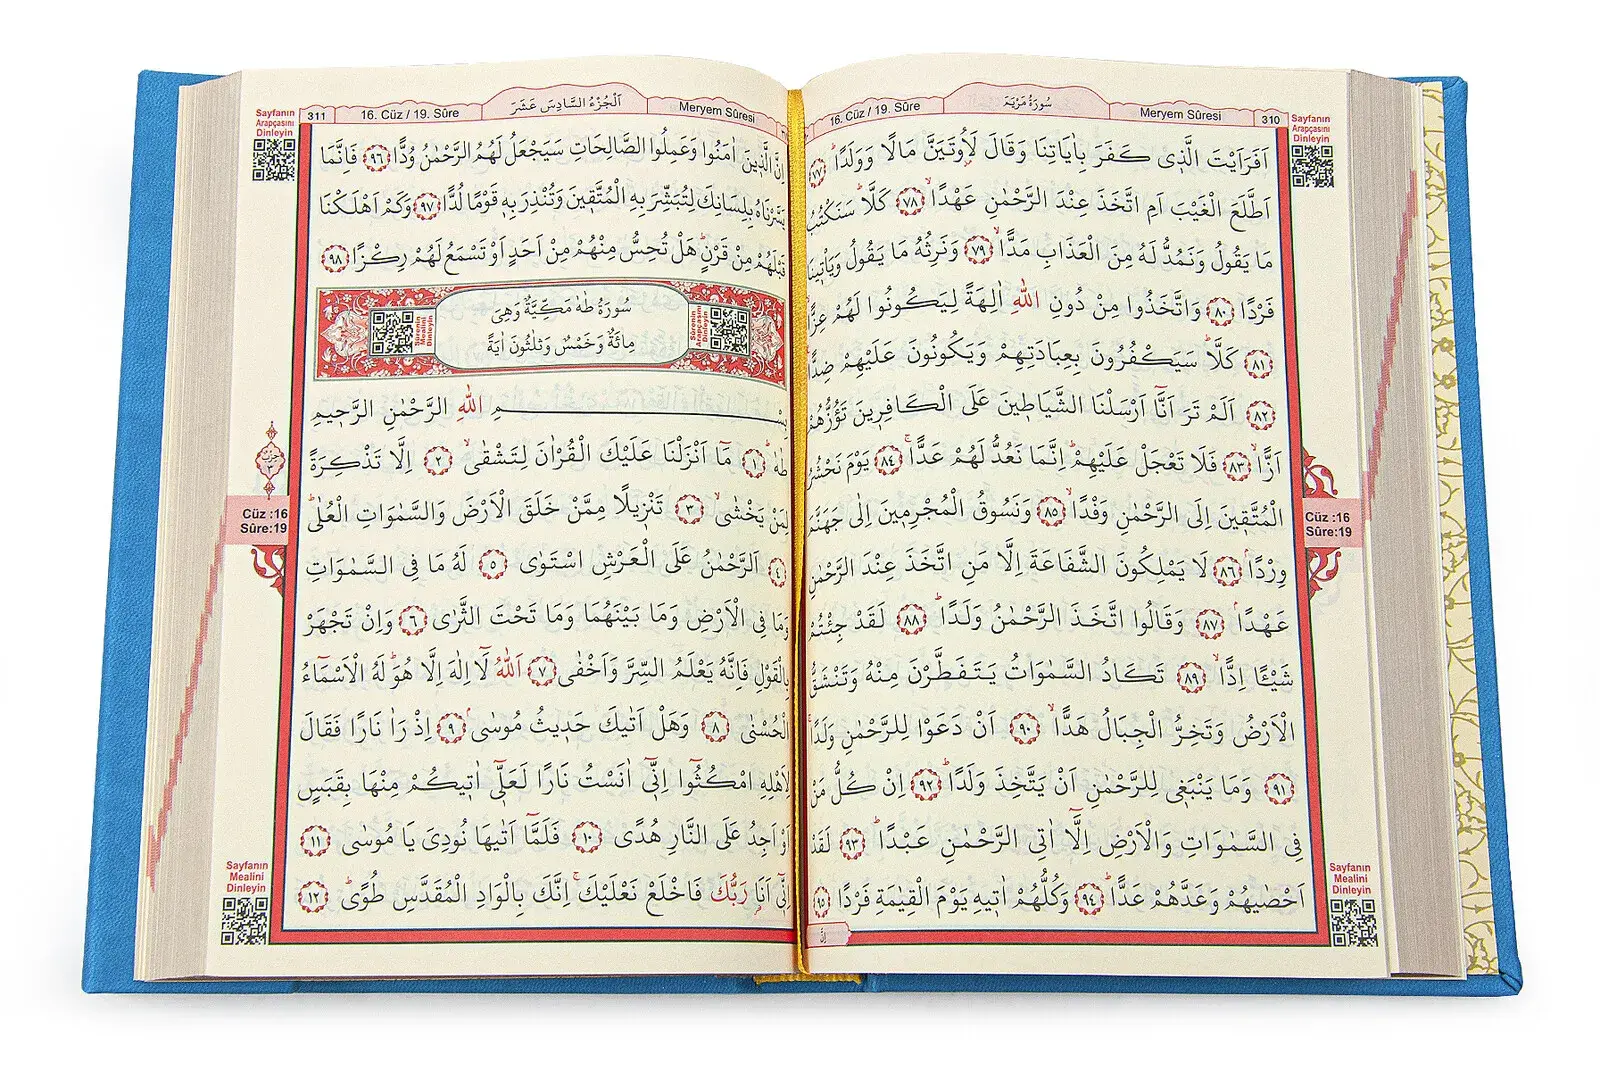 سُورَةُ مَرْيَمَ
16. Cüz / 19. Sûre
Meryem Sûresi
310
Sayfanın
Arapçasını
Dinleyin
اَفَرَاَيْتَ الَّذ۪ي كَفَرَ بِاٰيَاتِنَا وَقَالَ لَاُو۫تَيَنَّ مَالًا وَوَلَدًاۜ ﴿٧٧﴾
اَطَّلَعَ الْغَيْبَ اَمِ اتَّخَذَ عِنْدَ الرَّحْمٰنِ عَهْدًاۙ ﴿٧٨﴾ كَلَّاۜ سَنَكْتُبُ
مَا يَقُولُ وَنَمُدُّ لَهُ مِنَ الْعَذَابِ مَدًّاۙ ﴿٧٩﴾ وَنَرِثُهُ مَا يَقُولُ وَيَأْت۪ينَا
فَرْدًا ﴿٨٠﴾ وَاتَّخَذُوا مِنْ دُونِ اللّٰهِ اٰلِهَةً لِيَكُونُوا لَهُمْ عِزًّاۙ
﴿٨١﴾ كَلَّاۜ سَيَكْفُرُونَ بِعِبَادَتِهِمْ وَيَكُونُونَ عَلَيْهِمْ ضِدًّا۟
﴿٨٢﴾ اَلَمْ تَرَ اَنَّٓا اَرْسَلْنَا الشَّيَاط۪ينَ عَلَى الْكَافِر۪ينَ تَؤُزُّهُمْ
اَزًّاۙ ﴿٨٣﴾ فَلَا تَعْجَلْ عَلَيْهِمْۜ اِنَّمَا نَعُدُّ لَهُمْ عَدًّاۚ ﴿٨٤﴾ يَوْمَ نَحْشُرُ
الْمُتَّق۪ينَ اِلَى الرَّحْمٰنِ وَفْدًاۙ ﴿٨٥﴾ وَنَسُوقُ الْمُجْرِم۪ينَ اِلٰى جَهَنَّمَ
وِرْدًاۢ ﴿٨٦﴾ لَا يَمْلِكُونَ الشَّفَاعَةَ اِلَّا مَنِ اتَّخَذَ عِنْدَ الرَّحْمٰنِ
عَهْدًاۢ ﴿٨٧﴾ وَقَالُوا اتَّخَذَ الرَّحْمٰنُ وَلَدًاۜ ﴿٨٨﴾ لَقَدْ جِئْتُمْ
شَيْـًٔا اِدًّاۙ ﴿٨٩﴾ تَكَادُ السَّمٰوَاتُ يَتَفَطَّرْنَ مِنْهُ وَتَنْشَقُّ
الْاَرْضُ وَتَخِرُّ الْجِبَالُ هَدًّاۙ ﴿٩٠﴾ اَنْ دَعَوْا لِلرَّحْمٰنِ وَلَدًاۚ
﴿٩١﴾ وَمَا يَنْبَغ۪ي لِلرَّحْمٰنِ اَنْ يَتَّخِذَ وَلَدًاۜ ﴿٩٢﴾ اِنْ كُلُّ مَنْ
فِي السَّمٰوَاتِ وَالْاَرْضِ اِلَّٓا اٰتِي الرَّحْمٰنِ عَبْدًاۜ ﴿٩٣﴾ لَقَدْ
اَحْصٰيهُمْ وَعَدَّهُمْ عَدًّاۜ ﴿٩٤﴾ وَكُلُّهُمْ اٰت۪يهِ يَوْمَ الْقِيٰمَةِ فَرْدًا ﴿٩٥﴾
Cüz :16
Sûre:19
Sayfanın
Mealini
Dinleyin
Sayfanın
Arapçasını
Dinleyin
311
16. Cüz / 19. Sûre
اَلْجُزْءُ السَّادِسَ عَشَرَ
Meryem Sûresi
اِنَّ الَّذ۪ينَ اٰمَنُوا وَعَمِلُوا الصَّالِحَاتِ سَيَجْعَلُ لَهُمُ الرَّحْمٰنُ وُدًّا ﴿٩٦﴾ فَاِنَّمَا
يَسَّرْنَاهُ بِلِسَانِكَ لِتُبَشِّرَ بِهِ الْمُتَّق۪ينَ وَتُنْذِرَ بِه۪ قَوْمًا لُدًّا ﴿٩٧﴾ وَكَمْ اَهْلَكْنَا
قَبْلَهُمْ مِنْ قَرْنٍۜ هَلْ تُحِسُّ مِنْهُمْ مِنْ اَحَدٍ اَوْ تَسْمَعُ لَهُمْ رِكْزًا ﴿٩٨﴾
سُورَةُ طٰهٰ مَكِّيَّةٌ وَهِيَ
مِائَةٌ وَخَمْسٌ وَثَلٰثُونَ اٰيَةً
Sûrenin
Mealini
Dinleyin
Sûrenin
Arapçasını
Dinleyin
بِسْمِ اللّٰهِ الرَّحْمٰنِ الرَّح۪يمِ
طٰهٰۜ ﴿١﴾ مَٓا اَنْزَلْنَا عَلَيْكَ الْقُرْاٰنَ لِتَشْقٰىۙ ﴿٢﴾ اِلَّا تَذْكِرَةً
لِمَنْ يَخْشٰىۙ ﴿٣﴾ تَنْز۪يلًا مِمَّنْ خَلَقَ الْاَرْضَ وَالسَّمٰوَاتِ الْعُلٰىۜ
﴿٤﴾ اَلرَّحْمٰنُ عَلَى الْعَرْشِ اسْتَوٰى ﴿٥﴾ لَهُ مَا فِي السَّمٰوَاتِ
وَمَا فِي الْاَرْضِ وَمَا بَيْنَهُمَا وَمَا تَحْتَ الثَّرٰى ﴿٦﴾ وَاِنْ تَجْهَرْ
بِالْقَوْلِ فَاِنَّهُ يَعْلَمُ السِّرَّ وَاَخْفٰى ﴿٧﴾ اَللّٰهُ لَٓا اِلٰهَ اِلَّا هُوَۜ لَهُ الْاَسْمَٓاءُ
الْحُسْنٰى ﴿٨﴾ وَهَلْ اَتٰيكَ حَد۪يثُ مُوسٰىۢ ﴿٩﴾ اِذْ رَاٰ نَارًا فَقَالَ
لِاَهْلِهِ امْكُثُٓوا اِنّ۪ٓي اٰنَسْتُ نَارًا لَعَلّ۪ٓي اٰت۪يكُمْ مِنْهَا بِقَبَسٍ
اَوْ اَجِدُ عَلَى النَّارِ هُدًى ﴿١٠﴾ فَلَمَّٓا اَتٰيهَا نُودِيَ يَا مُوسٰى ﴿١١﴾
اِنّ۪ٓي اَنَا۬ رَبُّكَ فَاخْلَعْ نَعْلَيْكَۚ اِنَّكَ بِالْوَادِ الْمُقَدَّسِ طُوًىۜ ﴿١٢﴾
Cüz :16
Sûre:19
Sayfanın
Mealini
Dinleyin